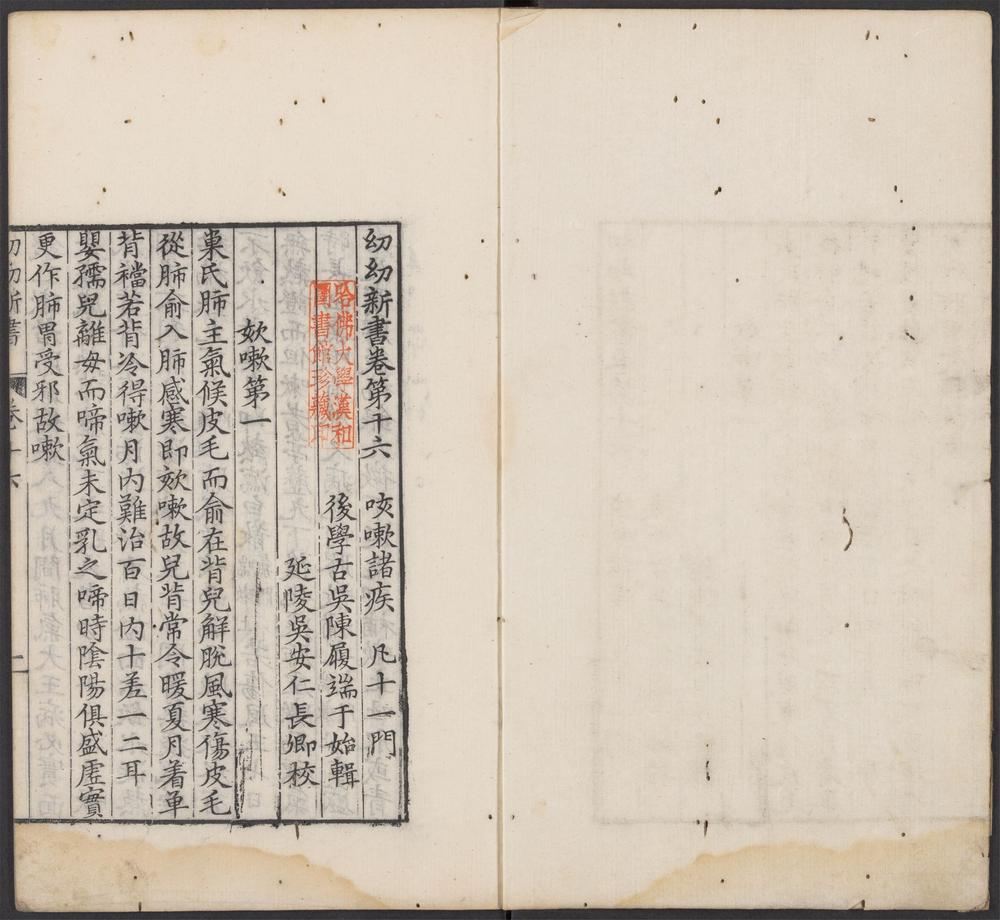 幼幼新書卷第十六　咳嗽諸疾　凡十一門
後學古吳陳履端于始輯
延陵吳安仁長卿校
欬嗽第一
巢氏肺主氣候皮毛而俞在背兒解脫風寒傷皮毛
從肺俞入肺感寒即欬嗽故兒背常令暖夏月着單
背襠若背冷得嗽月内難治百日内十差一二耳
嬰孺兒離母而啼氣未定乳之啼時陰陽俱盛虛實
更作肺胃受邪故嗽
幼幼新書　卷十六　一
哈佛大學漢和
圖書館珍藏印